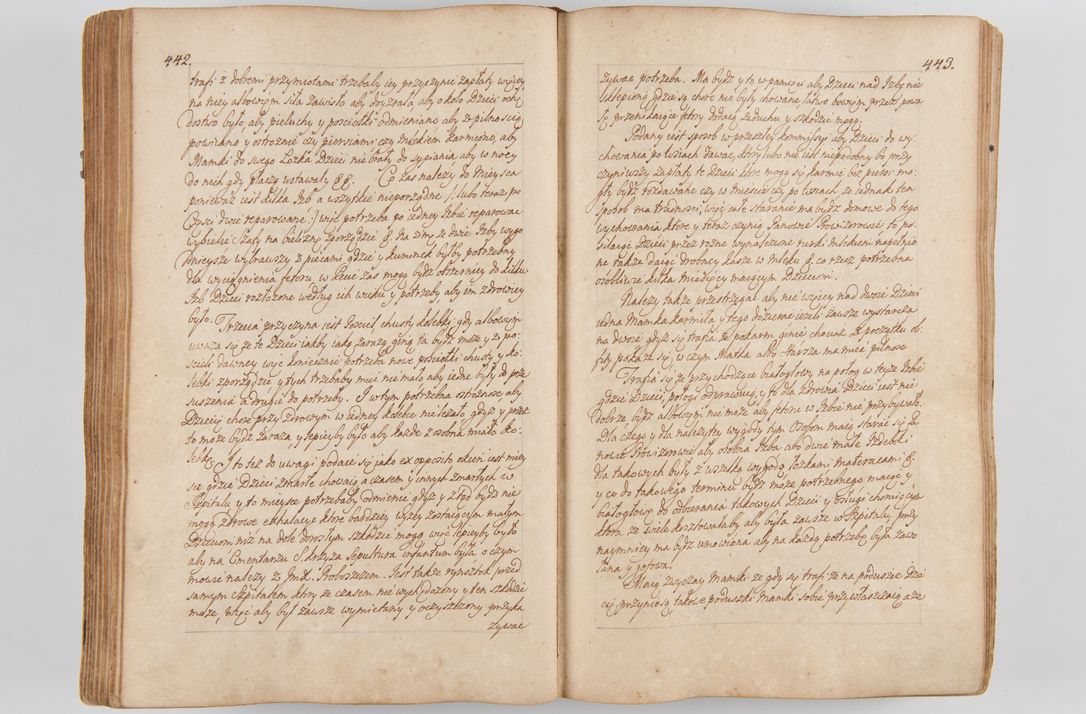 442.
trafi z dobrem przymiotami trzebaby iey przyczynić zapłaty więcey
na niey albowiem siła zawisło aby doyzrała aby około Dzieci ochę
dostwo było, aby pieluchy y pościołki odmieniano aby z pilnością
powiiano y ostrożnie czy piersiami czy mlekiem karmiono, aby
Mamki do swego Łozka Dzieci nie brały do sypiania aby w nocy
do nich gdy płaczą wstawały &&. Co zas nalezy do Mieysca
ponieważ iest kilka Izb a wszytkie nieporządne /: lubo teraz po
Części dwie reparowane :/ więc potrzeba po iedney Izbie reparować
wybielić Szafy na bieliznę sporządzić &. Na zimę ze dwie Izby wygo
dnieysze wybrawszy z piecami gdzie y kuminek byłby potrzebny
dla wyciągnienia fetoru, w Lecie zas mogą bydz otrzemiey do kilku
Izb Dzieci rozłożone według ich wieku y potrzeby aby im zdrowiey
było. Trzecia przyczyna iest Pościel, chusty kolebki gdy albowiem
uważa się ze te Dzieci iakby iaką zarazą giną ta bydz może y z po
ścieli dawney więc koniecznie potrzeba nowe pościołki chusty y ko
lebki zporządzić y tych trzebaby mieć nie mało aby iedne były do prze
suszenia a drugie do potrzeby. I w tym potrzebna ostrożność aby
Dziecię chore przy zdrowym w iedney kolebce nie leżało, gdyż y przez
to może bydz zaraza y lepieyby było aby każde z osobna miało ko
lebkę. I to też do uwagi podaie się jako ex opposito okien iest miey
sce gdzie Dzieci zmarłe chowaią a czasem y innych zmarłych w
Szpitalu y to mieysce potrzebaby odmienić gdyż y ztąd bydz nie
mogą zdrowe exhalacye które bardziey wyżey zostaiącym małym
Dzieciom niż na dole dorosłym szkodzić mogą więc lepieyby było
aby na Cmentarzu S. Krzyża Sepultura infantum była o czym
mowić nalezy z Jmć. Proboszczem. Jest także rynsztok przed
samym Szpitalem który ze czasem nie wychędożony y ten szkodzić
może, więc aby był zawsze wymietany y oczyszczony przyka
zywać
443.
zywać potrzeba. Ma bydz y to w pamięci aby Dzieci nad Izbę nie
sklepioną gdzie są chore nie były chowane, łatwo bowiem przez powa
łę przenidaiące fetory dodaią zaduchu y szkodzić mogą.
Podany iest sposob w przeszłey kommissyi aby Dzieci do wy
chowania po Wsiach dawać, który lubo nie iest niepodobny bo przy
czyniwszy zapłaty te Dzieci które mogą się karmić bez piersi mo
gły bydz rozdawane czy w mieście czy po Wsiach ze iednak ten
sposob ma trudności, więc całe staranie ma bydz domowe do tego
wychowania które y teraz czynią Panowie Prowizorowie to po
silaiąc Dzieci przez rozne wynalezione rurki mlekiem napełnio
ne także daiąc drobney kasze w mleku & co rzecz potrzebna
osobliwie kilka miesięcy maiącym Dzieciom.
Nalezy także przestrzegać aby nie więcey nad dwoie Dzieci
iedna Mamka karmiła y tego dozierać ieżeli zawsze wystarcza
na dwoie gdyż się trafia że pokarm ginie chociaż z początku ob
fity pokaże się, w czym Matka albo Starsza ma mieć pilność
Trafia się że przychodzące białogłowy na połog w teyże Izbie
gdzie Dzieci, połogi odprawuią, y to dla zdrowia Dzieci iest nie
dobrze, bydz albowiem nie może aby fetoru w Izbie nie przybywało.
Dla czego y dla należytey wygody tym Osobom maią starać się Pa
nowie Prowizorowie aby osobna Izba abo dwie małe Izdebki
dla takowych były z wszelką wygodą łożkami materacami &.
y co do takowego terminu bydz może potrzebnego maiąc y
białogłowę do odbierania takowych Dzieci y usługi chorniącym
która ze wiele kosztowałaby aby była zawsze w Szpitalu przy
naymniey ma bydz umowiona aby na każdą potrzebę była zawo
łana y gotowa.
Maią zwyczay Mamki że gdy się trafi że na poduszce Dzie
cię przyniosą takowe poduszki Mamki sobie przywłaszczaią a że